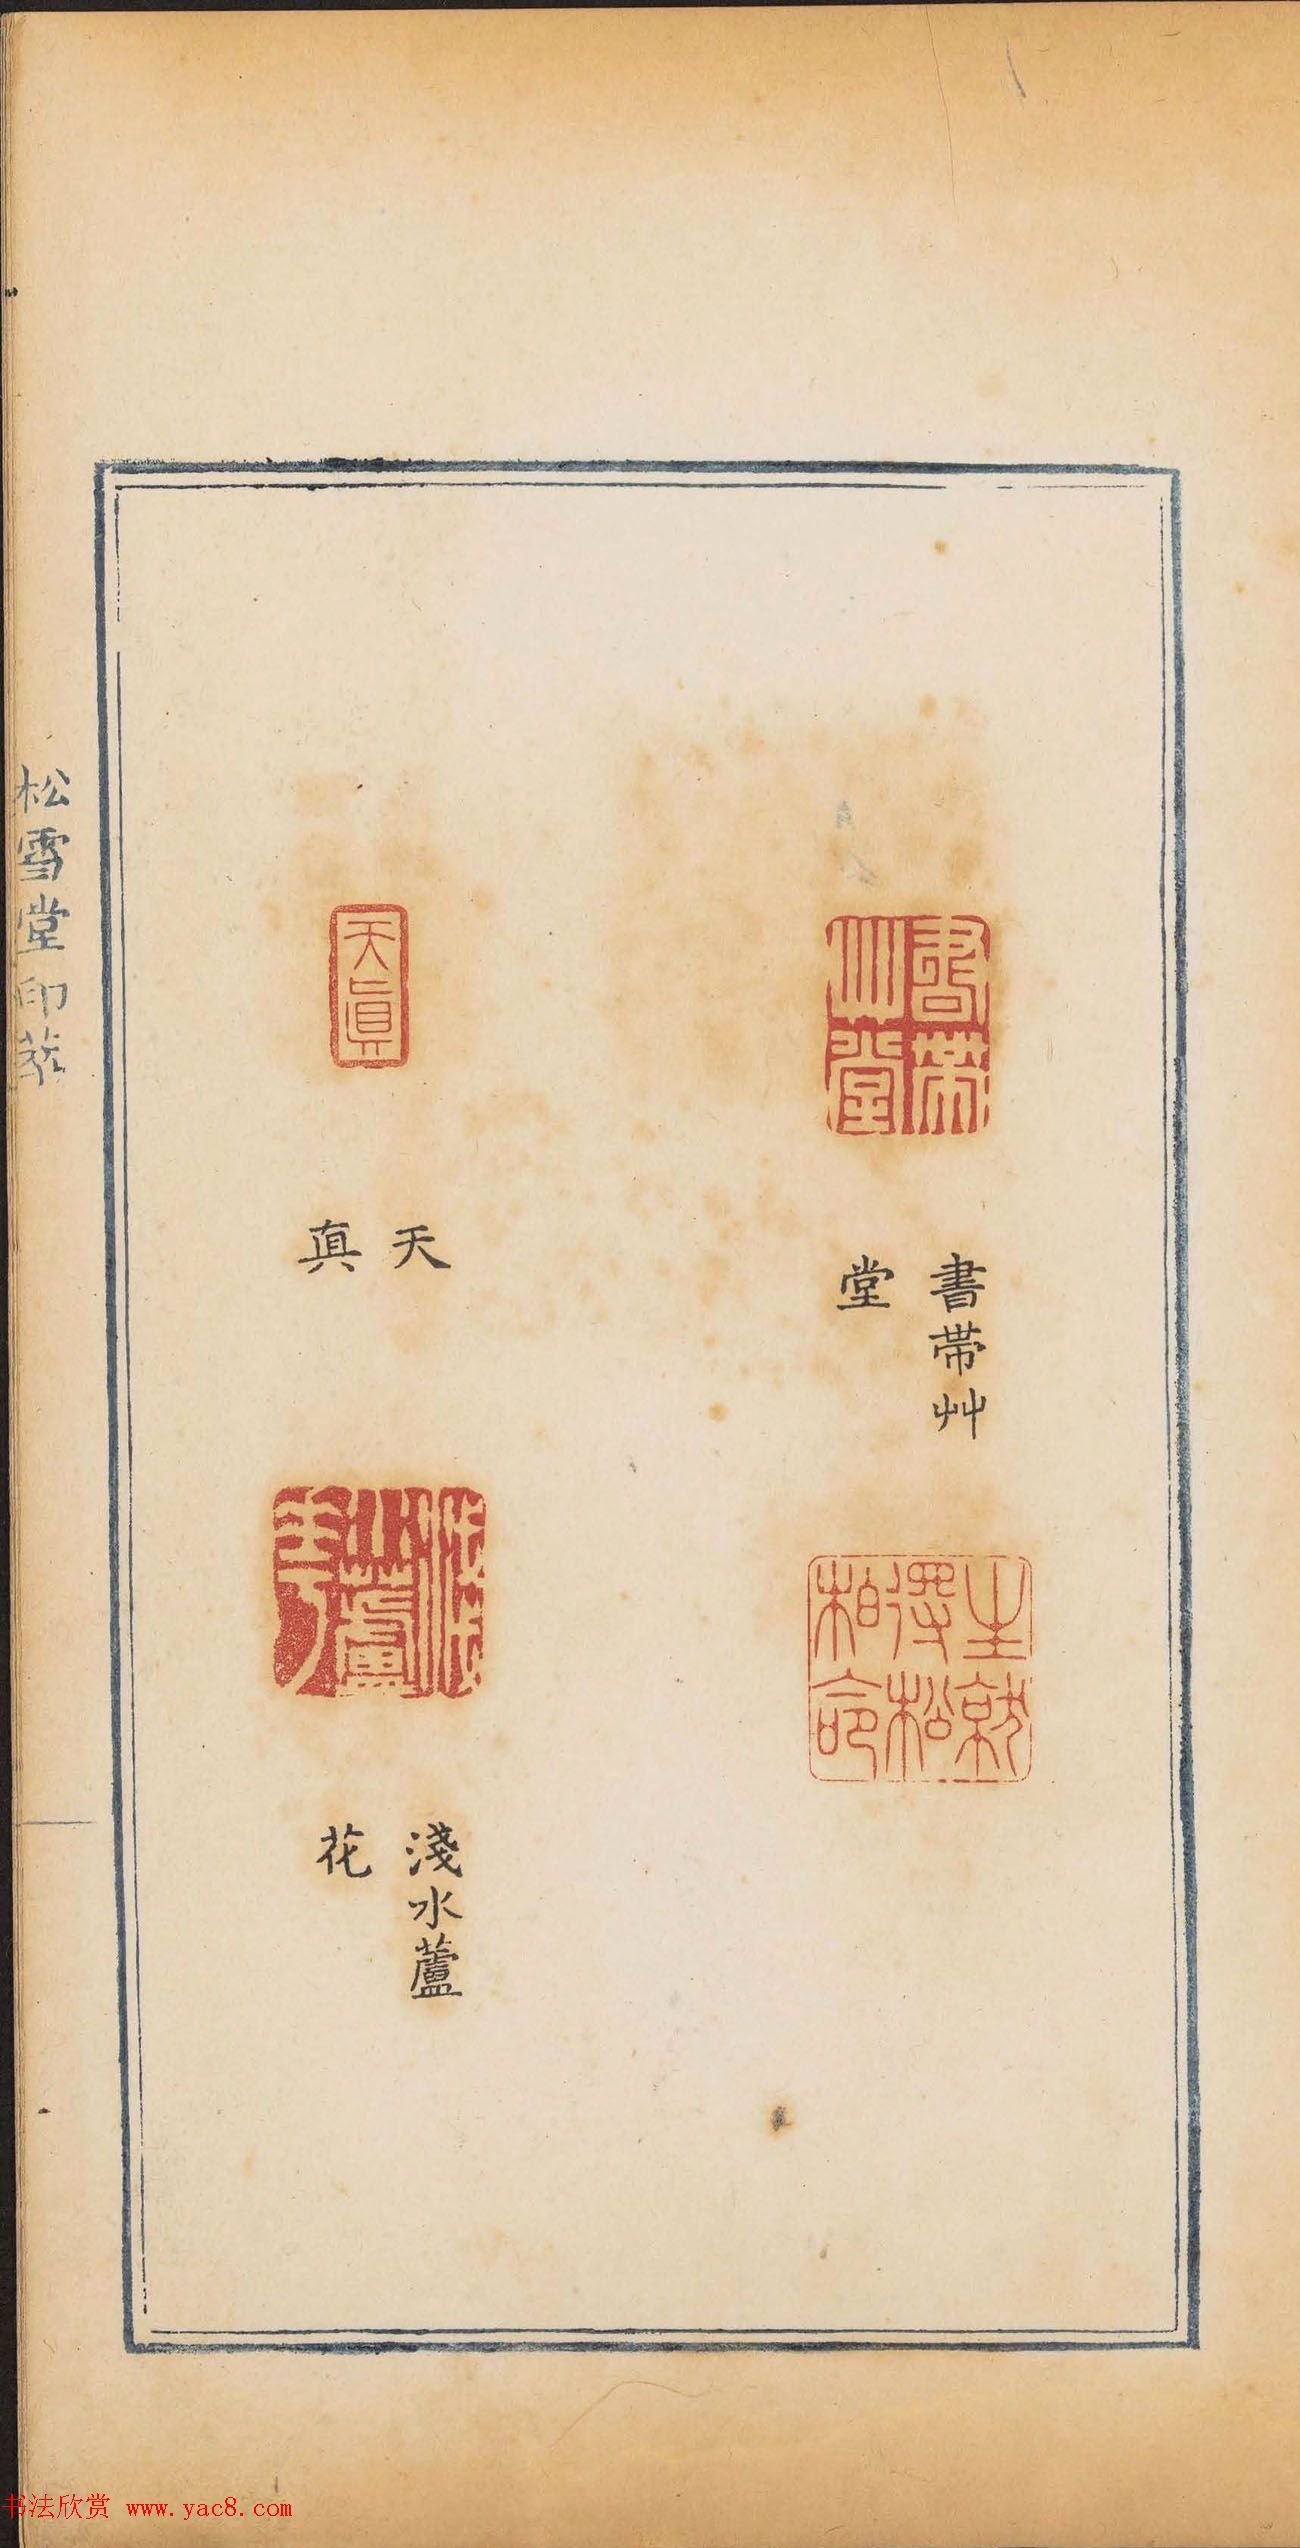 書帶
艸堂
書帶艸
堂
天真
天
真
淺水
蘆
花
淺水蘆
花
松雪堂印萃
书法欣赏 www.yac8.com